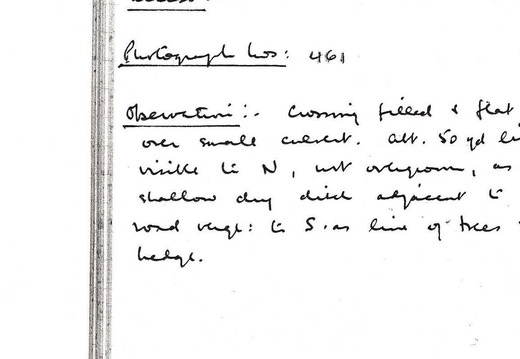 Photograph Nos: 461
Observation:- Crossing filled & flat
over small culvert. Abt. 50 yd
visible to N, not overgrown, as
shallow dry ditch adjacent to
road verge: to S. as line of trees
hedge.